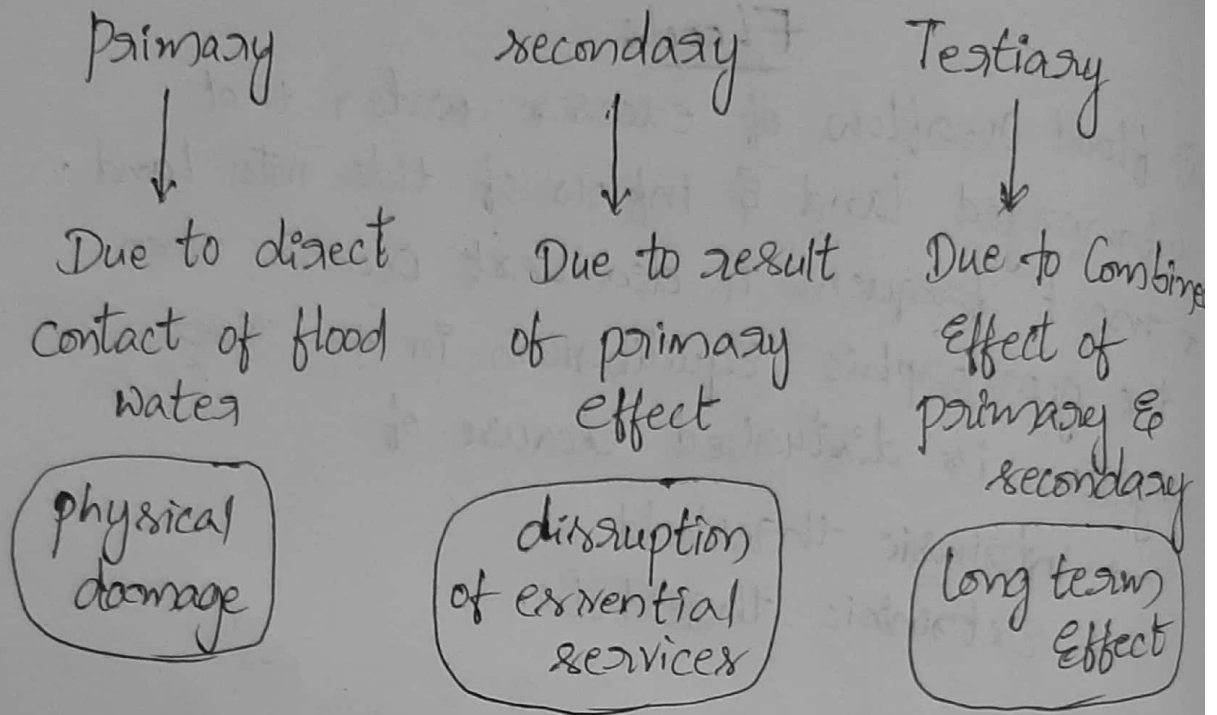 Primary
↓
Due to direct
contact of flood
water
physical
damage
secondary
↓
Due to result
of primary
effect
disruption
of essential
services
Tertiary
↓
Due to Combine
Effect of
primary &
secondary
long term
Effect